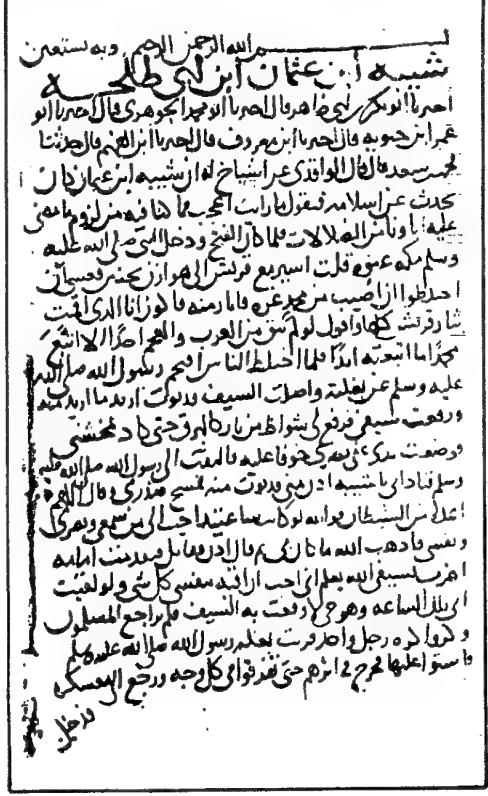 بسم الله الرحمن الرحيم وبه نستعين
شيبه ابن عثمان ابن ابي طلحه
اخبرنا ابو بكر بن ابي طاهر قال اخبرنا ابو محمد الجوهري قال اخبرنا ابو
عمر ابن حيويه قال اخبرنا ابن معروف قال اخبرنا ابن الفهم قال حدثنا
محمد بن سعد قال قال الواقدي عن اشياخ له ان شيبه ابن عثمان كان
يحدث عن اسلامه فيقول ما رايت اعجب مما كنا فيه من لزوم ما مضى
عليه اباونا من الضلالات فلما كان الفتح ودخل النبي صلى الله عليه
وسلم مكه عنوه قلت اسير مع قريش الى هوازن بحنين فعسى ان
اختلطوا ان اصيب من محمد غره فاثار منه فاكون انا الذي اقمت
بثار قريش كلها واقول لو لم يبق من العرب والعجم احدا الا اتبع
محمدا ما اتبعته ابدا فلما اختلط الناس اقتحم رسول الله صلى الله
عليه وسلم عن بغلته واصلت السيف فدنوت اريد ما اريد منه
ورفعت سيفي فرفع لي شواظ من نار كالبرق حتى كاد يمحشني
فوضعت يدي على بصري خوفا عليه فالتفت الى رسول الله صلى الله عليه
وسلم فنادى يا شيبه ادن مني فدنوت منه فمسح صدري وقال اللهم
اعذه من الشيطان فوالله لهو كان ساعتيذ احب الي من سمعي وبصري
ونفسي فاذهب الله ما كان بي ثم قال ادن فقاتل فتقدمت امامه
اضرب بسيفي الله يعلم اني احب ان اقيه بنفسي كل شي ولو لقيت
ابي تلك الساعه وهو حي لاوقعت به السيف فلم تراجع المسلمون
وكروا كره رجل واحد قربت بغله رسول الله صلى الله عليه وسلم
فاستوا عليها فخرج في اثرهم حتى تفرقوا في كل وجه ورجع الى معسكره
فدخل